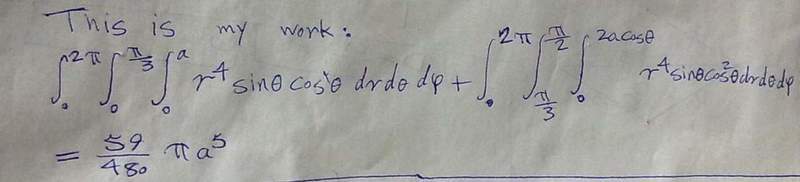 This is my work:
∫₀^2π ∫₀^π/3 ∫₀^a r⁴ sinθ cos²θ dr dθ dφ + ∫₀^2π ∫_π/3^π/2 ∫₀^2a cosθ r⁴ sinθ cos²θ dr dθ dφ
= 59/480 π a⁵